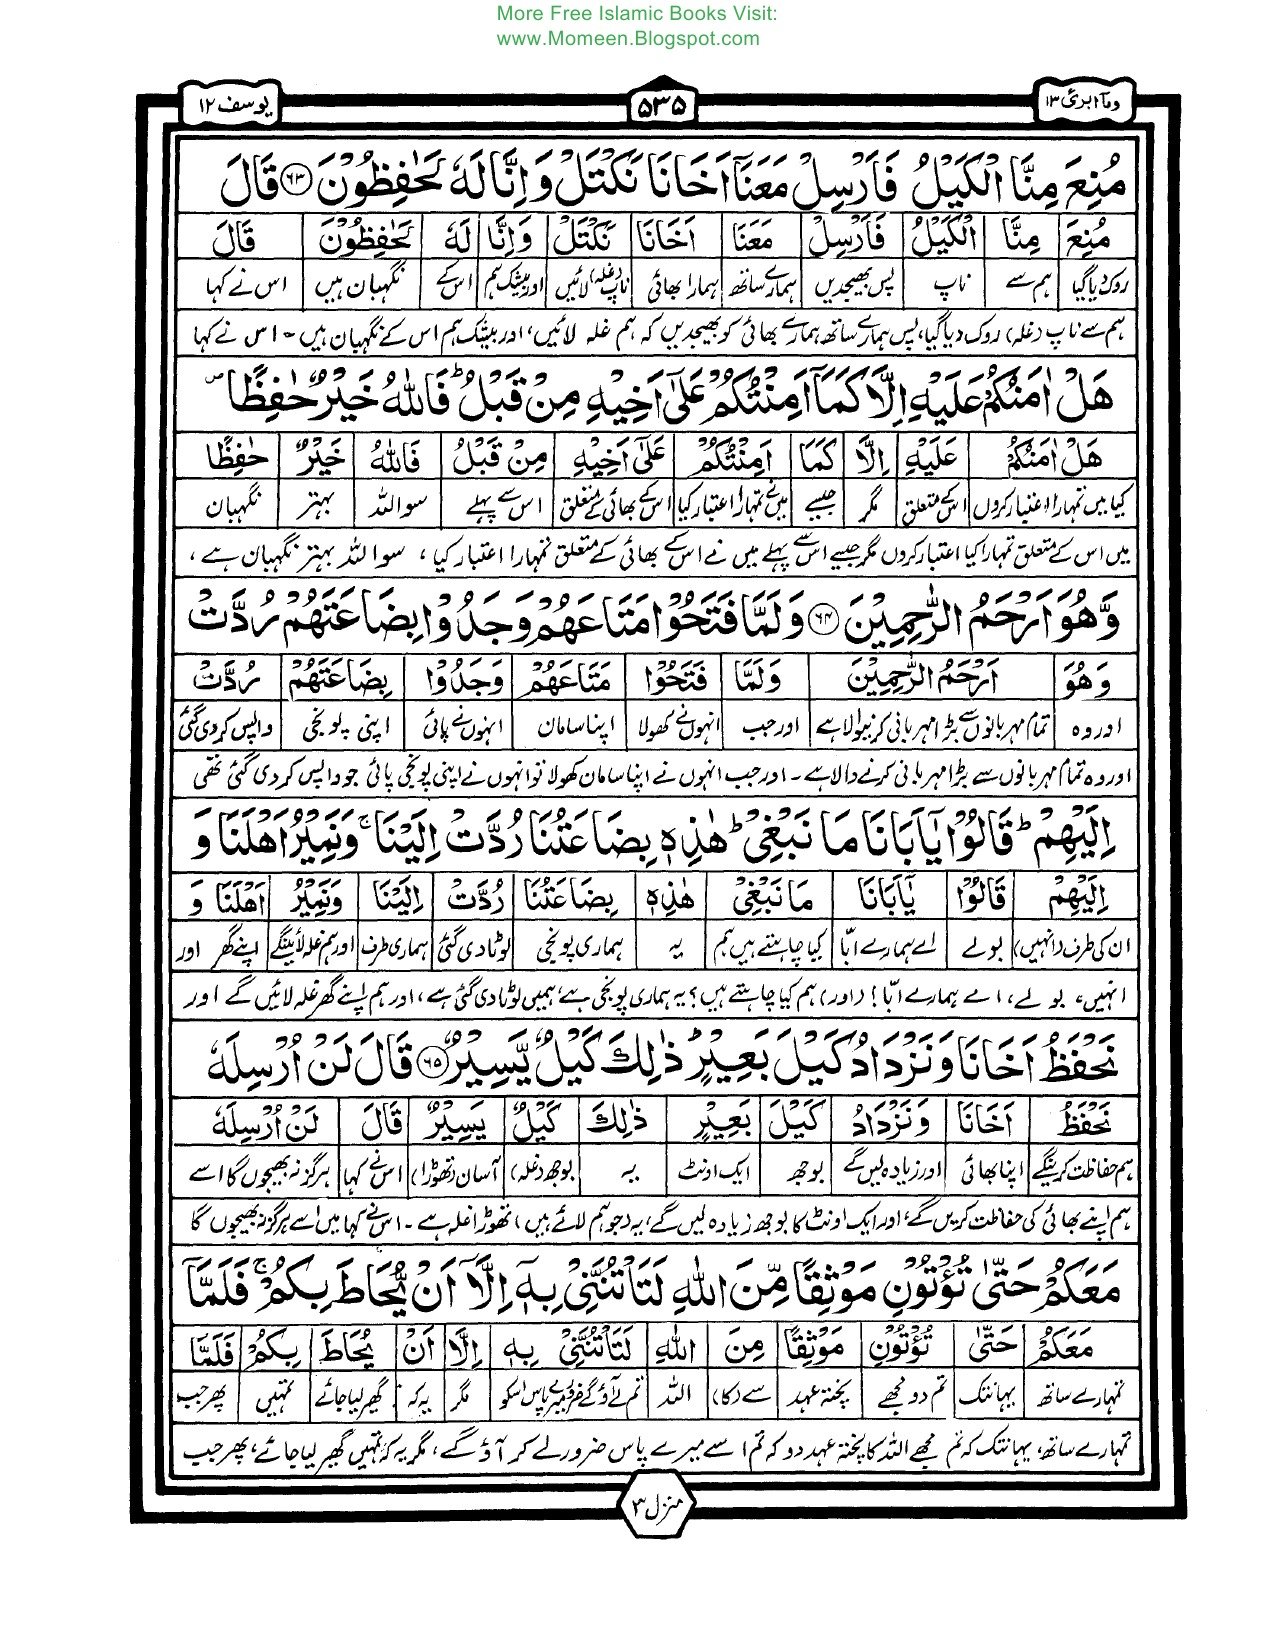 More Free Islamic Books Visit:
www.Momeen.Blogspot.com
وما ابرئ ١٣
۵۳۵
يوسف ١٢
مُنِعَ مِنَّا الْكَيْلُ فَاَرْسِلْ مَعَنَآ اَخَانَا نَكْتَلْ وَاِنَّا لَهٗ لَحٰفِظُوْنَ ﴿٦٣﴾ قَالَ
مُنِعَ مِنَّا الْكَيْلُ فَاَرْسِلْ مَعَنَا اَخَانَا نَكْتَلْ وَاِنَّا لَهٗ لَحٰفِظُوْنَ قَالَ
روک دیا گیا ہم سے ناپ پس بھیجدیں ہمارے ساتھ ہمارا بھائی ناپ (غلہ) لائیں اور بیشک ہم اس کے نگہبان ہیں اس نے کہا
ہم سے ناپ (غلہ) روک دیا گیا، پس ہمارے ساتھ ہمارے بھائی کو بھیجدیں کہ ہم غلہ لائیں، اور بیشک ہم اس کے نگہبان ہیں - اس نے کہا
هَلْ اٰمَنُكُمْ عَلَيْهِ اِلَّا كَمَآ اَمِنْتُكُمْ عَلٰٓى اَخِيْهِ مِنْ قَبْلُ ؕ فَاللّٰهُ خَيْرٌ حٰفِظًا ص
هَلْ اٰمَنُكُمْ عَلَيْهِ اِلَّا كَمَا اَمِنْتُكُمْ عَلٰٓى اَخِيْهِ مِنْ قَبْلُ فَاللّٰهُ خَيْرٌ حٰفِظًا
کیا میں تمہارا اعتبار کروں اس کے متعلق مگر جیسے میں نے تمہارا اعتبار کیا اس کے بھائی کے متعلق اس سے پہلے سو اللہ بہتر نگہبان
میں اس کے متعلق تمہارا کیا اعتبار کروں مگر جیسے اس سے پہلے میں نے اس کے بھائی کے متعلق تمہارا اعتبار کیا، سو اللہ بہتر نگہبان ہے،
وَّهُوَ اَرْحَمُ الرّٰحِمِيْنَ ﴿٦٤﴾ وَلَمَّا فَتَحُوْا مَتَاعَهُمْ وَجَدُوْا بِضَاعَتَهُمْ رُدَّتْ
وَهُوَ اَرْحَمُ الرّٰحِمِيْنَ وَلَمَّا فَتَحُوْا مَتَاعَهُمْ وَجَدُوْا بِضَاعَتَهُمْ رُدَّتْ
اور وہ تمام مہربانوں سے بڑا مہربانی کرنیوالا ہے اور جب انہوں نے کھولا اپنا سامان انہوں نے پائی اپنی پونجی واپس کر دی گئی
اور وہ تمام مہربانوں سے بڑا مہربانی کرنے والا ہے - اور جب انہوں نے اپنا سامان کھولا تو انہوں نے اپنی پونجی پائی جو واپس کر دی گئی تھی
اِلَيْهِمْ ؕ قَالُوْا يٰٓاَبَانَا مَا نَبْغِيْ ؕ هٰذِهٖ بِضَاعَتُنَا رُدَّتْ اِلَيْنَا ۚ وَنَمِيْرُ اَهْلَنَا وَ
اِلَيْهِمْ قَالُوْا يٰٓاَبَانَا مَا نَبْغِيْ هٰذِهٖ بِضَاعَتُنَا رُدَّتْ اِلَيْنَا وَنَمِيْرُ اَهْلَنَا وَ
ان کی طرف (انہیں) بولے اے ہمارے ابّا کیا چاہتے ہیں ہم یہ ہماری پونجی لوٹا دی گئی ہماری طرف اور ہم غلہ لائینگے اپنے گھر اور
انہیں، بولے، اے ہمارے ابّا! (اور) ہم کیا چاہتے ہیں؟ یہ ہماری پونجی ہے، ہمیں لوٹا دی گئی ہے، اور ہم اپنے گھر غلہ لائیں گے اور
نَحْفَظُ اَخَانَا وَنَزْدَادُ كَيْلَ بَعِيْرٍ ؕ ذٰلِكَ كَيْلٌ يَّسِيْرٌ ﴿٦٥﴾ قَالَ لَنْ اُرْسِلَهٗ
نَحْفَظُ اَخَانَا وَنَزْدَادُ كَيْلَ بَعِيْرٍ ذٰلِكَ كَيْلٌ يَسِيْرٌ قَالَ لَنْ اُرْسِلَهٗ
ہم حفاظت کرینگے اپنا بھائی اور زیادہ لیں گے بوجھ ایک اونٹ یہ بوجھ (غلہ) آسان (تھوڑا) اس نے کہا ہرگز نہ بھیجوں گا اسے
ہم اپنے بھائی کی حفاظت کریں گے، اور ایک اونٹ کا بوجھ زیادہ لیں گے، یہ (جو ہم لائے ہیں) تھوڑا غلہ ہے - اس نے کہا میں اسے ہرگز نہ بھیجوں گا
مَعَكُمْ حَتّٰى تُؤْتُوْنِ مَوْثِقًا مِّنَ اللّٰهِ لَتَاْتُنَّنِيْ بِهٖٓ اِلَّآ اَنْ يُّحَاطَ بِكُمْ ۚ فَلَمَّآ
مَعَكُمْ حَتّٰى تُؤْتُوْنِ مَوْثِقًا مِنَ اللّٰهِ لَتَاْتُنَّنِيْ بِهٖ اِلَّا اَنْ يُحَاطَ بِكُمْ فَلَمَّا
تمہارے ساتھ یہانتک تم دو مجھے پختہ عہد سے (کا) اللہ تم لے آؤ گے ضرور میرے پاس اسکو مگر یہ کہ گھیر لیا جائے تمہیں پھر جب
تمہارے ساتھ، یہانتک کہ تم مجھے اللہ کا پختہ عہد دو کہ تم اسے میرے پاس ضرور لے کر آؤ گے، مگر یہ کہ تمہیں گھیر لیا جائے، پھر جب
منزل ٣